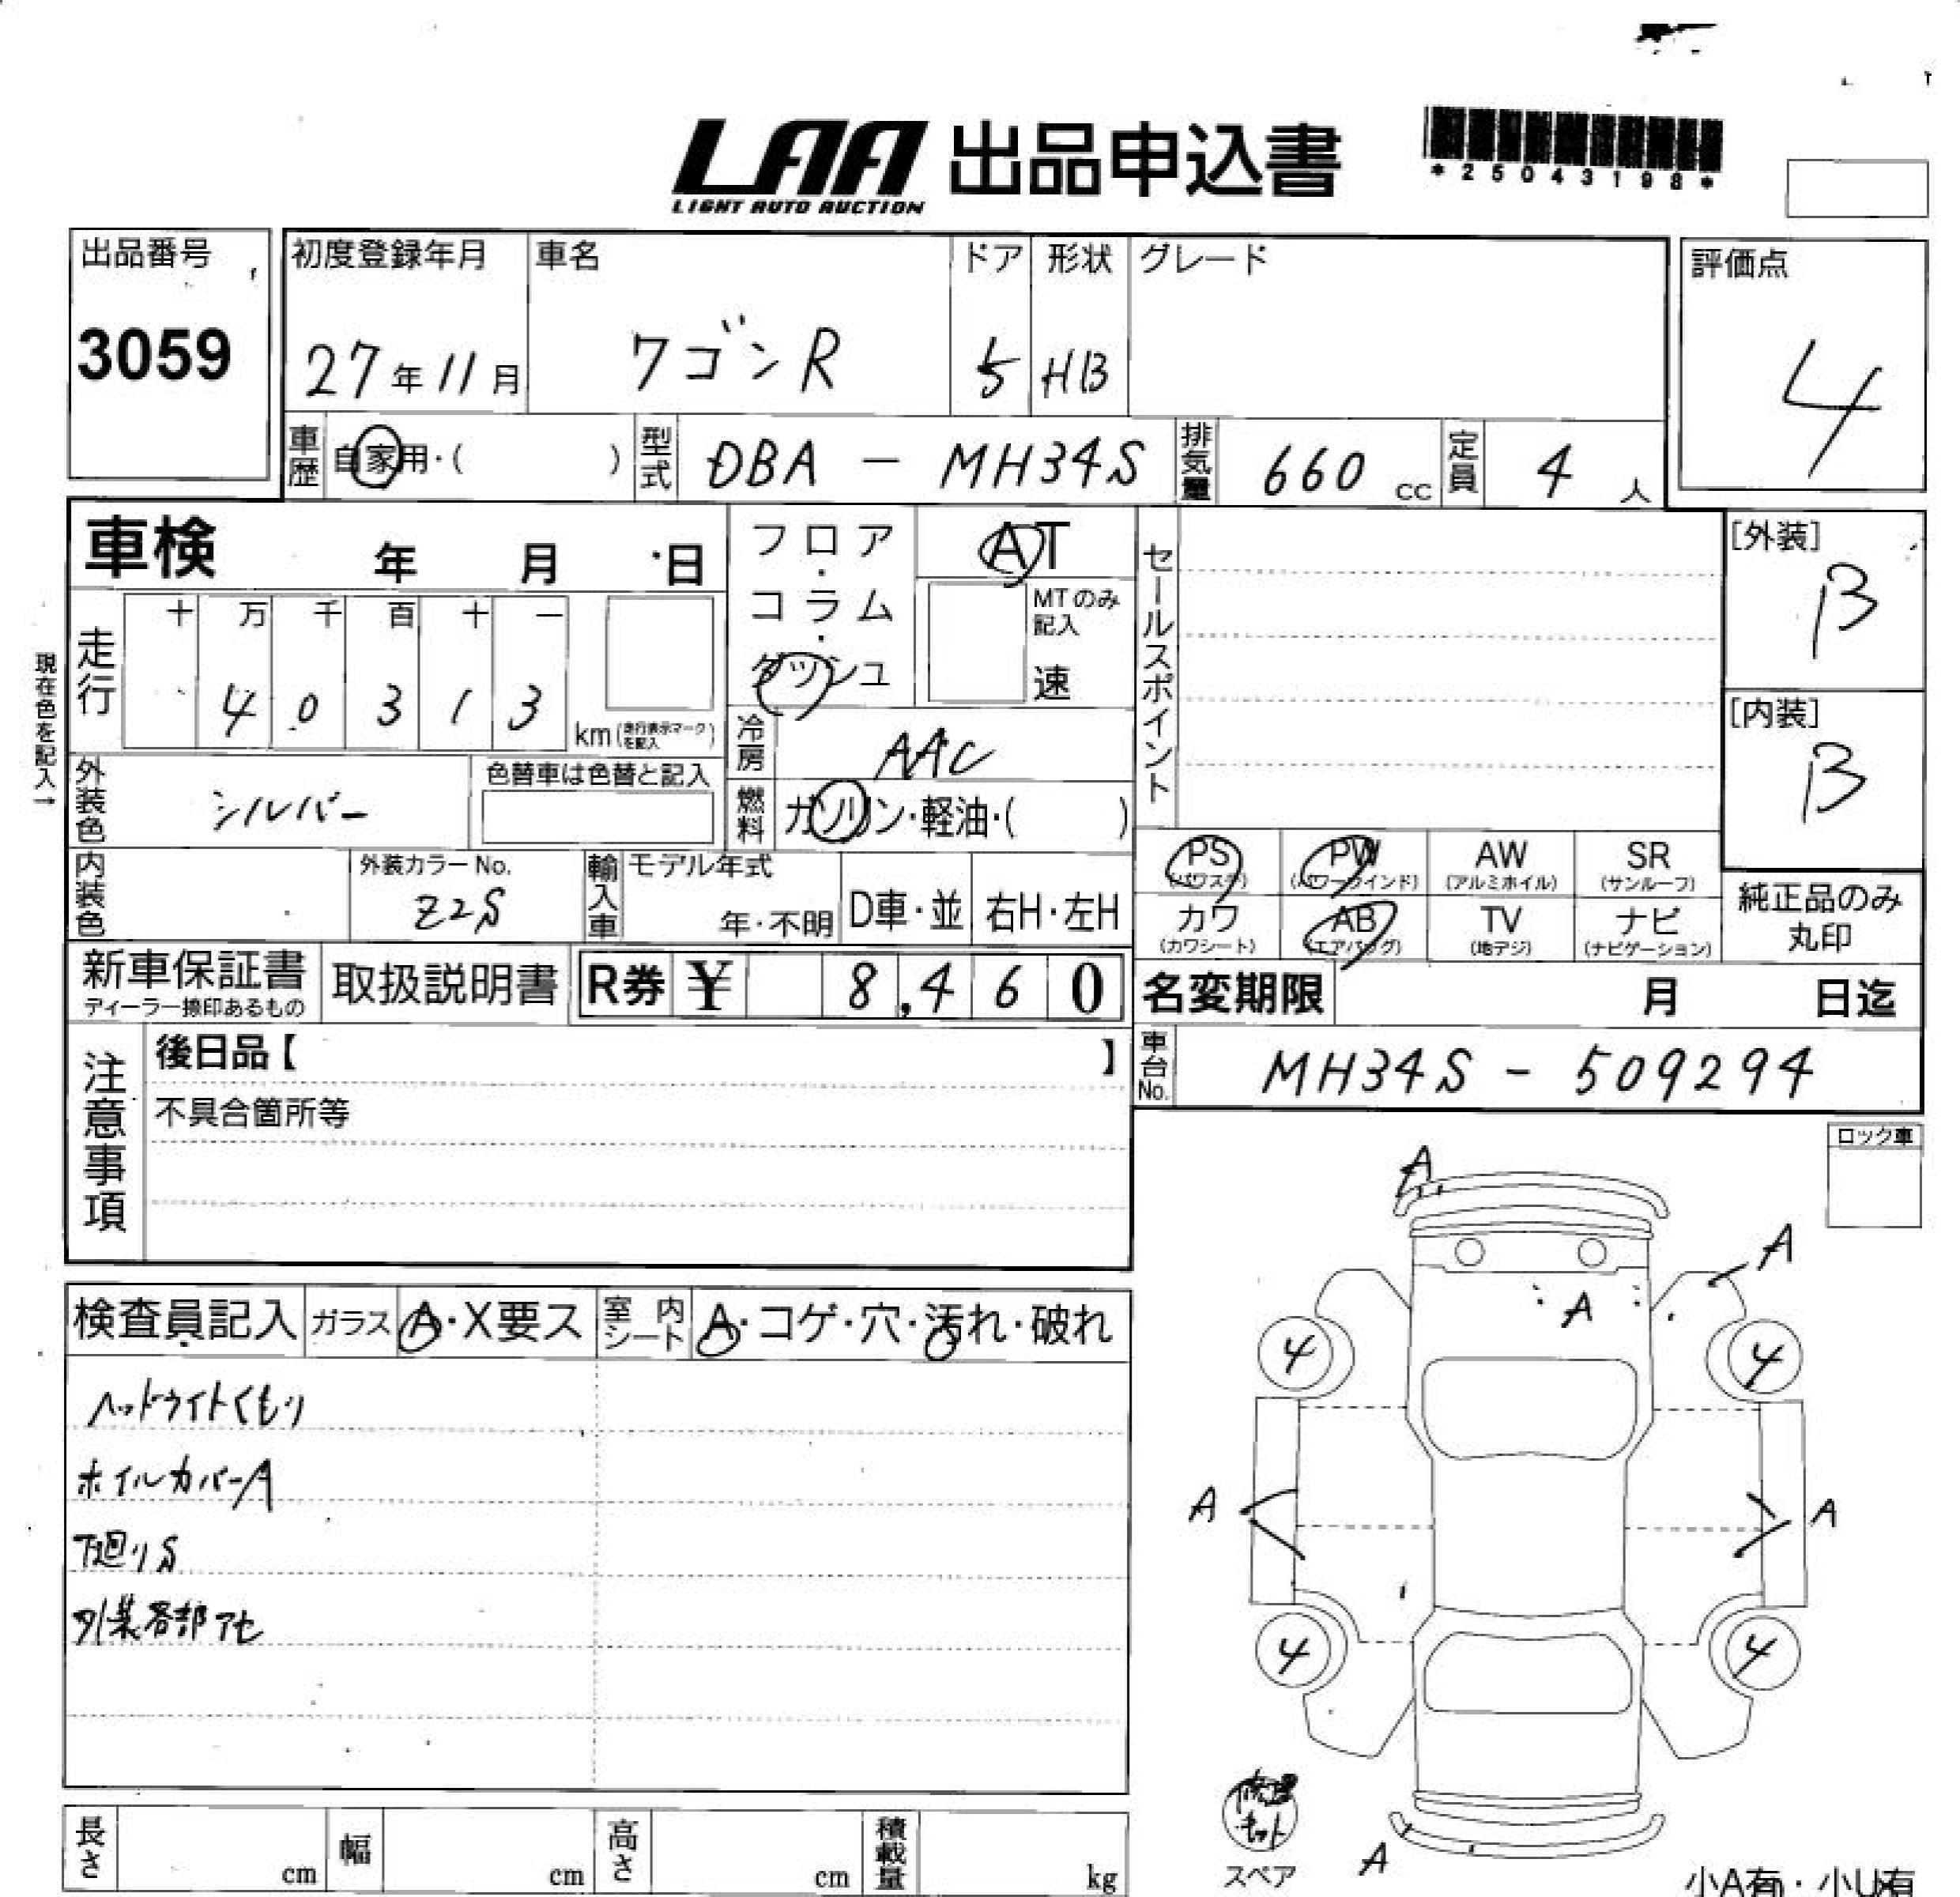 LAA 出品申込書
LIGHT AUTO AUCTION
*25043198*
出品番号
3059
初度登録年月
27年11月
車名
ワゴンR
ドア
5
形状
HB
グレード
評価点
4
車歴
自家用・( )
型式
DBA - MH34S
排気量
660 cc
定員
4 人
車検 年 月 日
フロア・コラム・ダッシュ
AT
MTのみ記入
速
セールスポイント
[外装]
B
[内装]
B
現在色を記入→
走行
十 万 千 百 十 一
4 0 3 1 3
km (走行表示マークを記入)
冷房
AAC
外装色
シルバー
色替車は色替と記入
燃料
ガソリン・軽油・( )
内装色
外装カラーNo.
Z2S
輸入車
モデル年式
年・不明
D車・並
右H・左H
PS (パワステ)
PW (パワーウインド)
AW (アルミホイル)
SR (サンルーフ)
カワ (カワシート)
AB (エアバッグ)
TV (地デジ)
ナビ (ナビゲーション)
純正品のみ
丸印
新車保証書
ディーラー捺印あるもの
取扱説明書
R券 ¥ 8,460
名変期限 月 日迄
車台No.
MH34S - 509294
注意事項
後日品【 】
不具合箇所等
ロック車
検査員記入
ガラス
A・X要ス
室内シート
A・コゲ・穴・汚れ・破れ
ヘッドライトくもり
ホイルカバーA
下廻りS
外装各部アセ
A
A
A
4
4
A
A
4
4
修理
キット
スペア
A
長さ cm
幅 cm
高さ cm
積載量 kg
小A有・小U有